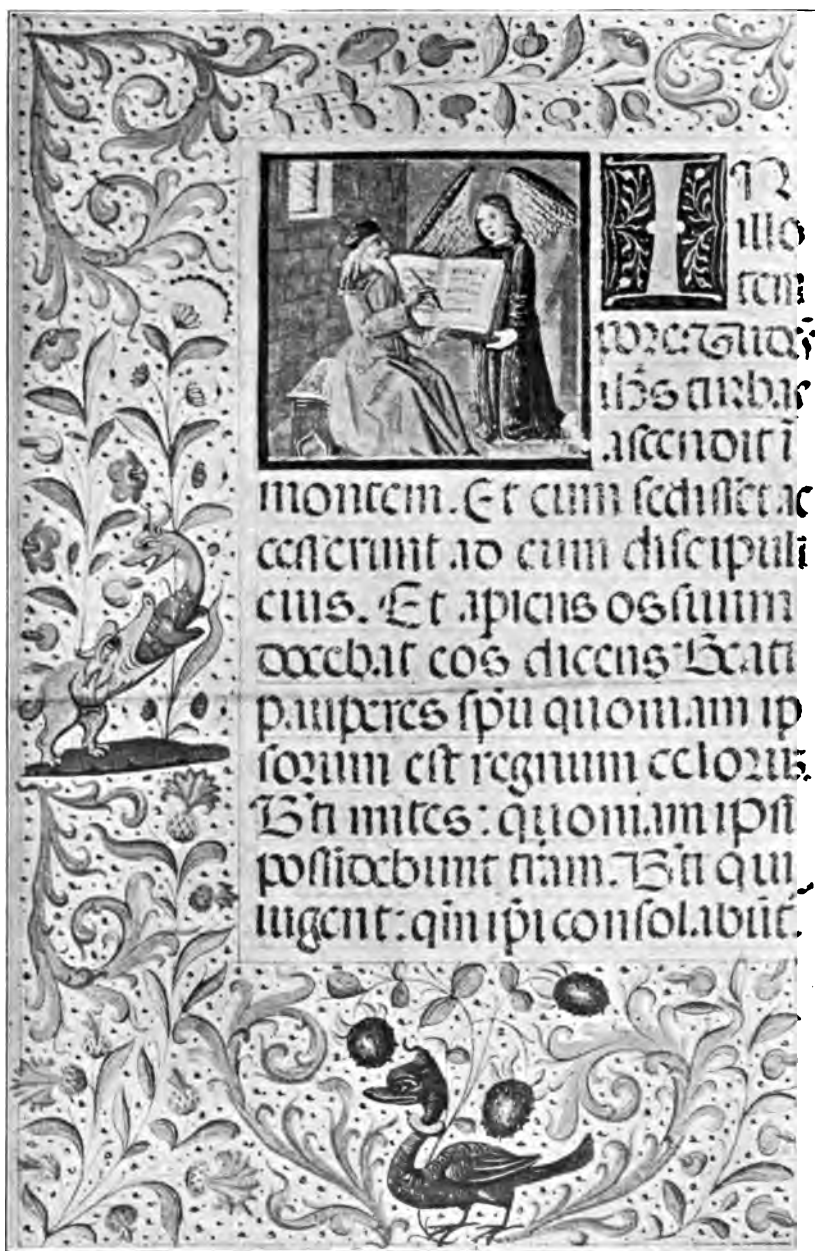 IN
illo
tem
pore: Vidēs
ihs turbas
ascendit ī
montem. Et cum sedisset ac
cesserunt ad eum discipuli
eius. Et apiens os suum
docebat eos dicens Beati
pauperes spū quoniam ip
sorum est regnum celorū.
Bti mites: quoniam ipsi
possidebunt trām. Bti qui
lugent: qm̄ ipi consolabūt̄.